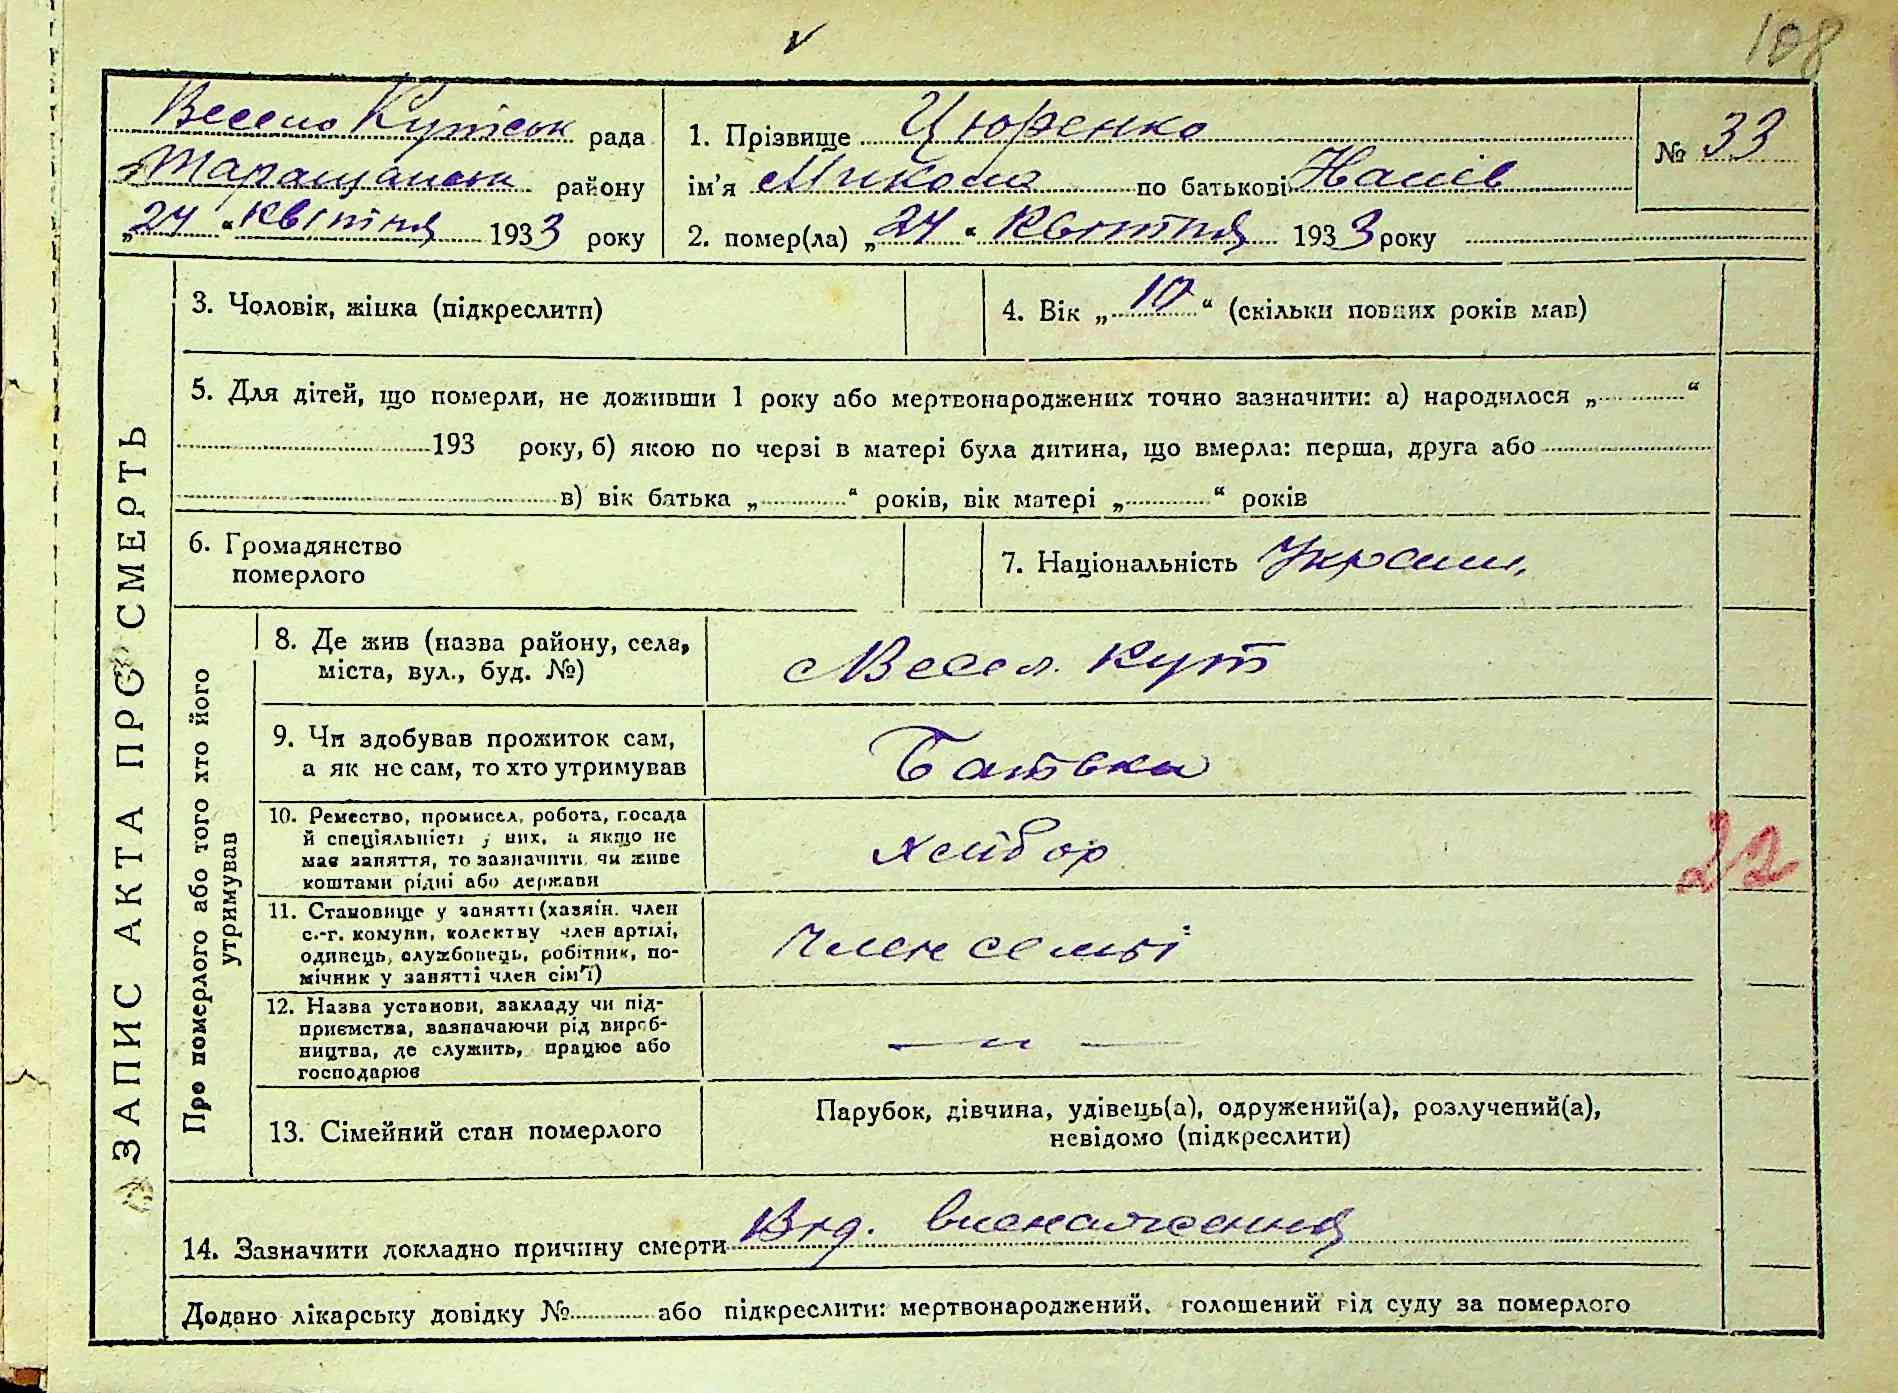 108
Весело Кутськ рада
Таращанськ району
„24“ квітня 1933 року
1. Прізвище Цюренко
ім’я Микола по батькові
2. помер(ла) „24“ квітня 1933 року
№ 33
ЗАПИС АКТА ПРО СМЕРТЬ
3. Чоловік, жінка (підкреслити)
4. Вік „10“ (скільки повних років мав)
5. Для дітей, що померли, не доживши 1 року або мертвонароджених точно зазначити: а) народилося „ “
193 року, б) якою по черзі в матері була дитина, що вмерла: перша, друга або
в) вік батька „ “ років, вік матері „ “ років
6. Громадянство
померлого
7. Національність Україн.
Про померлого або того хто його
утримував
8. Де жив (назва району, села,
міста, вул., буд. №)
Весел. Кут
9. Чи здобував прожиток сам,
а як не сам, то хто утримував
Батьки
10. Ремество, промисел, робота, посада
й спеціяльність у них, а якщо не
має заняття, то зазначити, чи живе
коштами рідні або держави
хлібор
22
11. Становище у занятті (хазяїн, член
с.-г. комуни, колективу член артілі,
одинець, службовець, робітник, по-
мічник у занятті член сім’ї)
Член семьї
12. Назва установи, закладу чи під-
приємства, зазначаючи рід вироб-
ництва, де служить, працює або
господарює
— „ —
13. Сімейний стан померлого
Парубок, дівчина, удівець(а), одружений(а), розлучений(а),
невідомо (підкреслити)
14. Зазначити докладно причину смерти Від. виснаження
Додано лікарську довідку № або підкреслити: мертвонароджений, голошений від суду за померлого